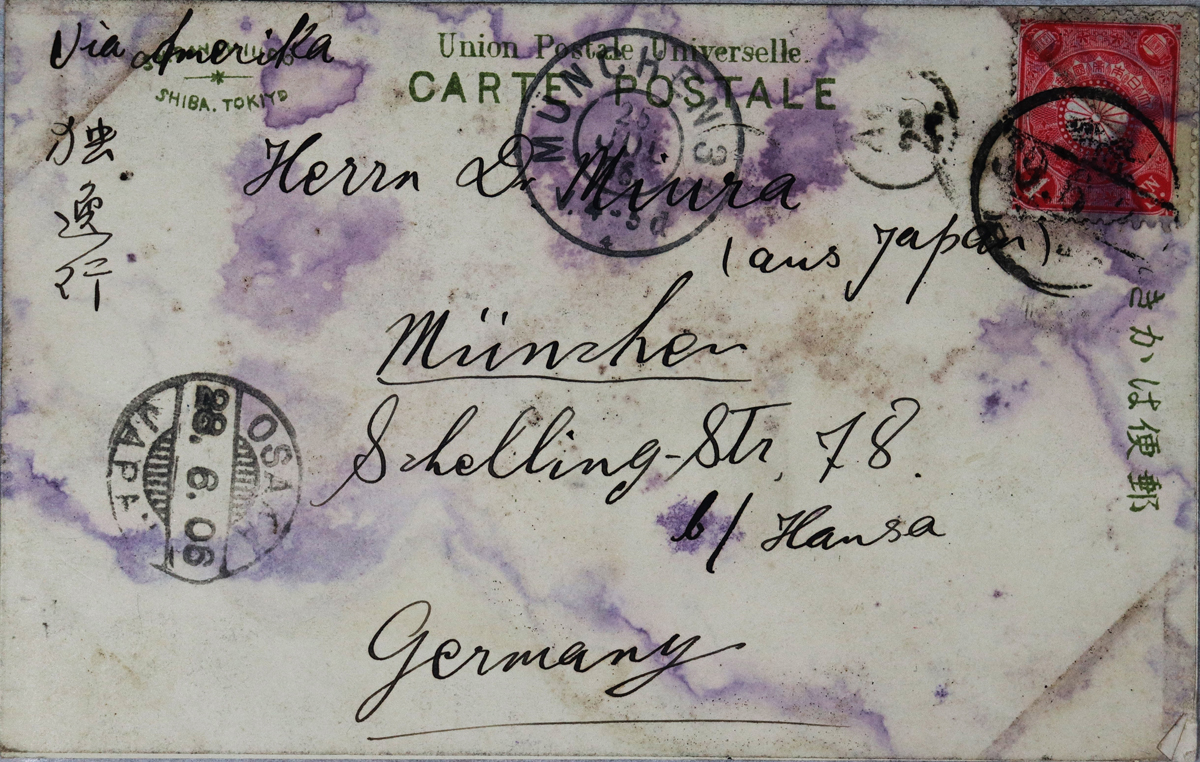 Via Amerika
SHIBA. TOKIYO
Union Postale Universelle.
CARTE POSTALE
MUNCHEN 3
25
JUL
4-5 d
独逸行
Herrn Dr Miura
(aus Japan)
München
Schelling-Str, 78.
b/ Hansa
Germany
OSAKA
28. 6. 06
JAPE
郵便はかき